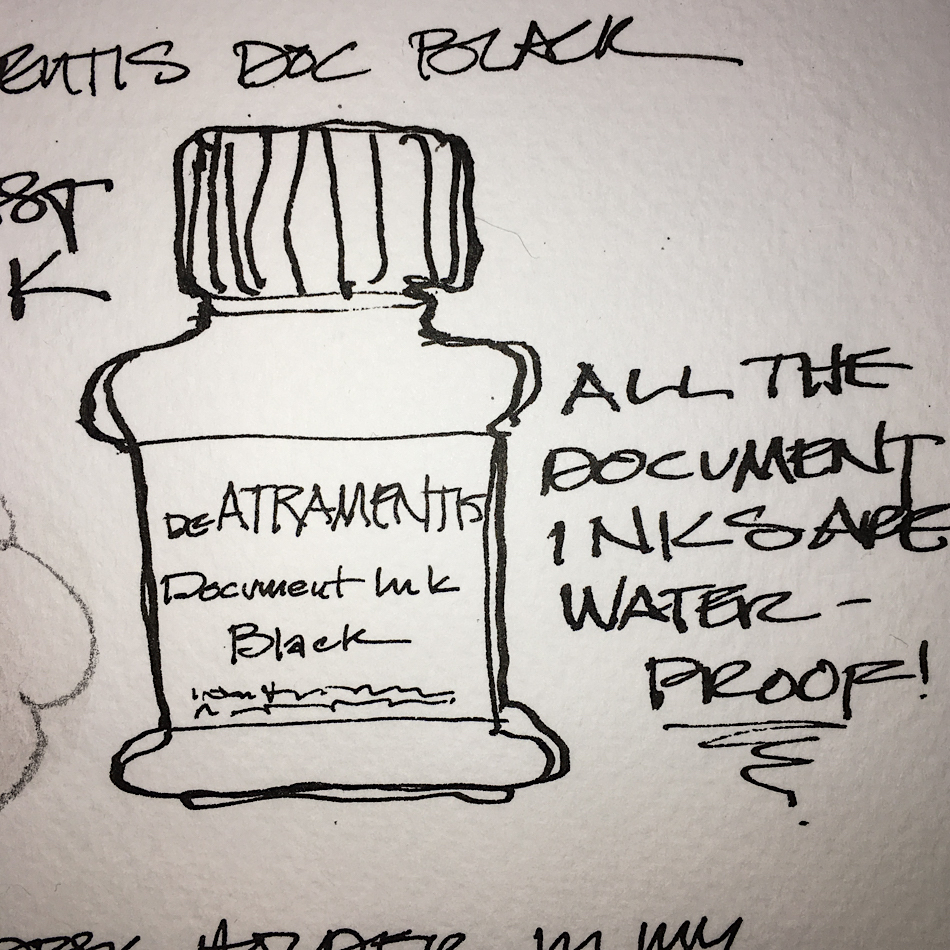 ENTIS DOC BLACK
ST
K
DE ATRAMENTIS
Document Ink
Black
ALL THE
DOCUMENT
INKS ARE
WATER-
PROOF!
IN MY